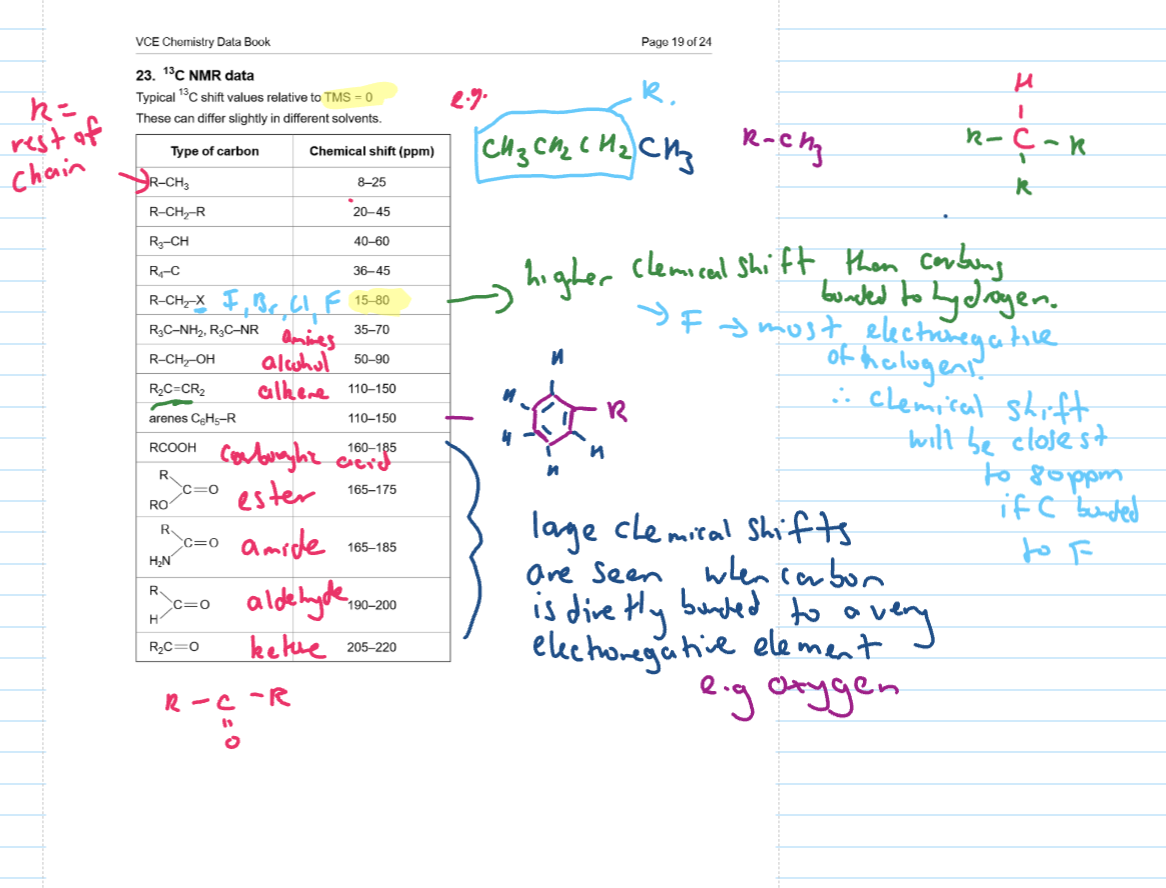 VCE Chemistry Data Book
Page 19 of 24
23. ¹³C NMR data
Typical ¹³C shift values relative to TMS = 0
These can differ slightly in different solvents.
R =
rest of
chain
Type of carbon Chemical shift (ppm)
R–CH₃ 8–25
R–CH₂–R 20–45
R₃–CH 40–60
R₄–C 36–45
R–CH₂–X I, Br, Cl, F 15–80
R₃C–NH₂, R₃C–NR amines 35–70
R–CH₂–OH alcohol 50–90
R₂C=CR₂ alkene 110–150
arenes C₆H₅–R 110–150
RCOOH carboxylic acid 160–185
R
RO
C=O ester 165–175
R
H₂N
C=O amide 165–185
R
H
C=O aldehyde 190–200
R₂C=O ketone 205–220
R – C – R
=
O
e.g.
R.
CH₃CH₂CH₂CH₃
R–CH₃
H
R– C – R
R
higher chemical shift than carbons
bonded to hydrogen.
→ F → most electronegative
of halogens.
∴ chemical shift
will be closest
to 80ppm
if C bonded
to F
H
H R
H H
H
large chemical shifts
are seen when carbon
is directly bonded to a very
electronegative element
e.g oxygen